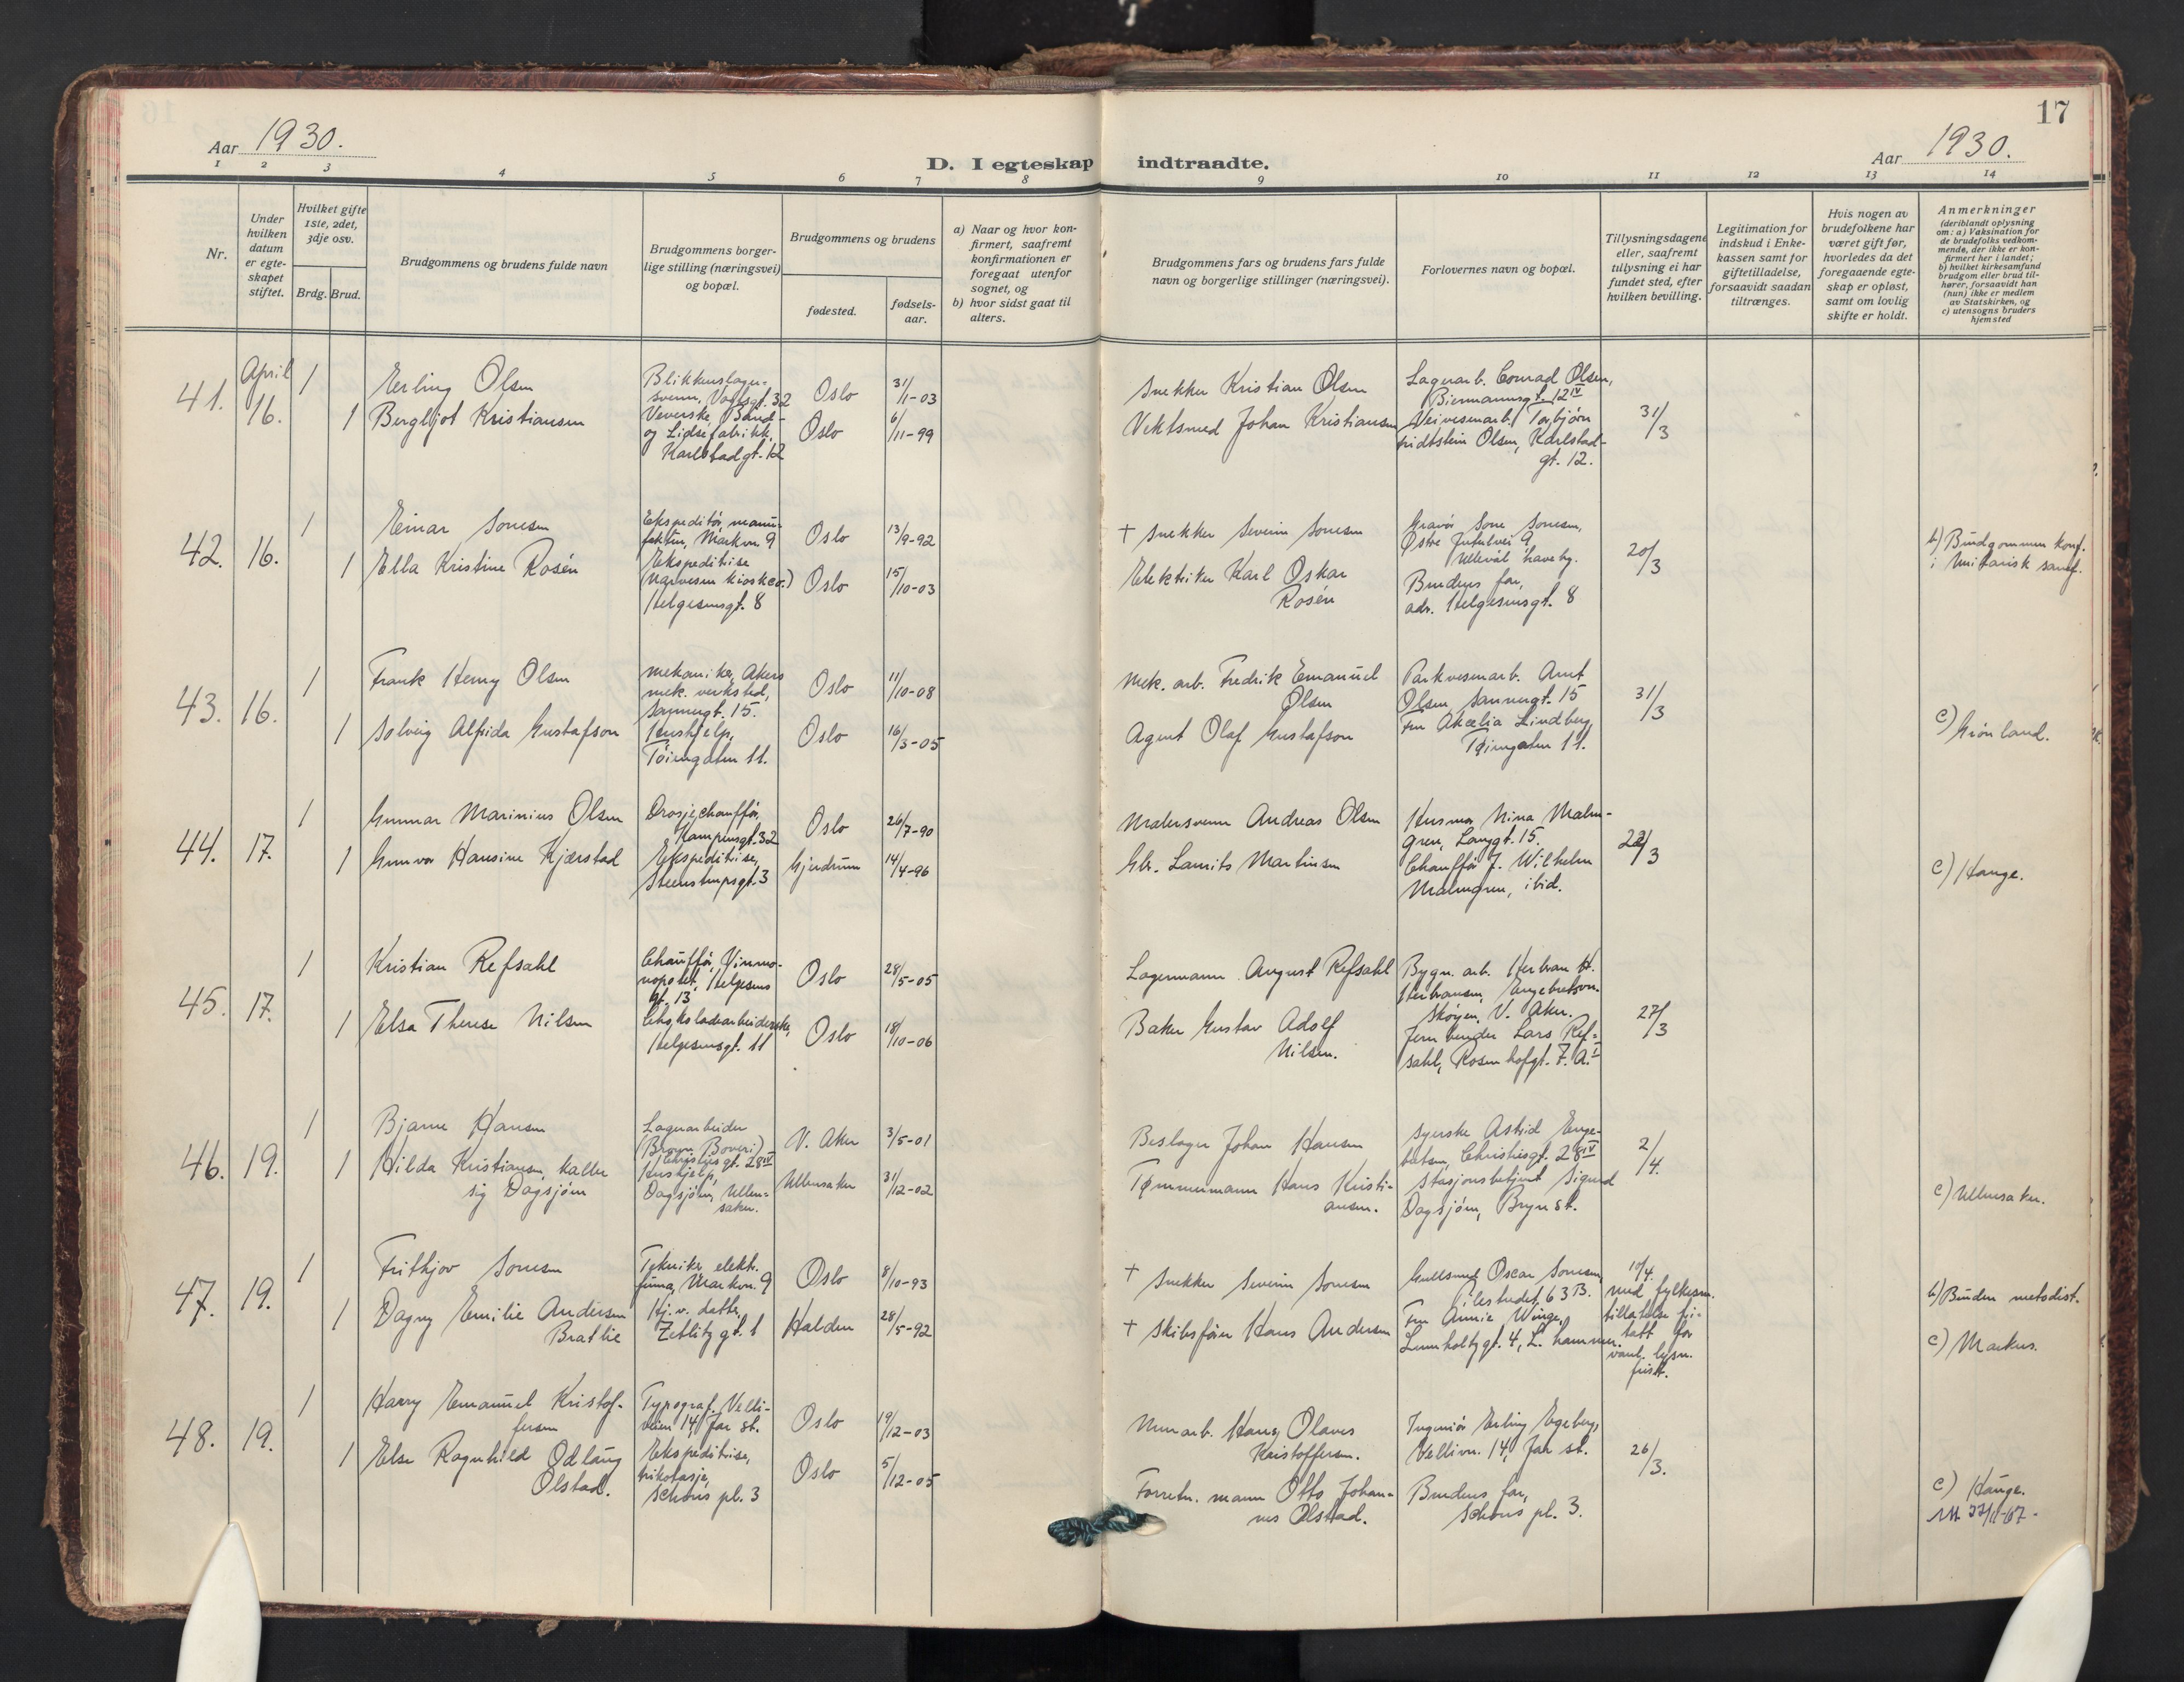 17
Aar 1930.
D. I egteskap indtraadte.
Aar 1930.
1 2 3 4 5 6 7 8 9 10 11 12 13 14
Nr.
Under
hvilken
datum
er egte-
skapet
stiftet.
Hvilket gifte
1ste, 2det,
3dje osv.
Brdg. Brud.
Brudgommens og brudens fulde navn
Brudgommens borger-
lige stilling (næringsvei)
og bopæl.
Brudgommens og brudens
fødested.
fødsels-
aar.
a) Naar og hvor kon-
firmert, saafremt
konfirmationen er
foregaat utenfor
sognet, og
b) hvor sidst gaat til
alters.
Brudgommens fars og brudens fars fulde
navn og borgerlige stillinger (næringsvei).
Forlovernes navn og bopæl.
Tillysningsdagene
eller, saafremt
tullysning ei har
fundet sted, efter
hvilken bevilling.
Legitimation for
indskud i Enke-
kassen samt for
giftetilladelse,
forsaavidt saadan
tiltrænges.
Hvis nogen av
brudefolkene har
været gift før,
hvorledes da det
foregaaende egte-
skap er opløst,
samt om lovlig
skifte er holdt.
Anmerkninger
(deriblandt oplysning
om: a) Vaksination for
de brudefolks vedkom-
mende, der ikke er kon-
firmert her i landet;
b) hvilket kirkesamfund
brudgom eller brud til-
hører, forsaavidt han
(hun) ikke er medlem
av Statskirken, og
c) utensogns bruders
hjemsted
41.
April
16.
1
Erling Olsen
Blikkenslager-
svenn, Vogtsgt. 32
Oslo
31/1-03
Snekker Kristian Olsen
Lagerarb. Conrad Olsen,
Biermannsgt. 12 IV
1
Bergljot Kristiansen
Veverske, Bånd-
og Lidsefabrikk,
Karlstadgt. 12
Oslo
6/11-99
Vektsmed Johan Kristiansen
Veivesenarb. Torbjørn
Fridtstein Olsen, Karlstad-
gt. 12.
31/3
42.
16.
1
Einar Sonesen
Ekspeditør, manu-
faktur, Markvn 9
Oslo
13/9-92
† Snekker Severin Sonesen
Gravør Sone Sonesen,
Østre Jutulvei 9,
Ullevål haveby.
1
Ella Kristine Rosén
Ekspeditrise
(Narvesen kiosker)
Helgesensgt. 8
Oslo
15/10-03
Elektriker Karl Oskar
Rosén
Brudens far,
adr. Helgesensgt. 8
20/3
b) Brudgommen konf.
i Unitarisk samf.
43.
16.
1
Frank Henry Olsen
Mekaniker, Akers
mek. verksted,
Sannergt. 15.
Oslo
11/10-08
Mek. arb. Fredrik Emanuel
Olsen
Parkvesenarb. Arnt
Olsen, Sannergt. 15
1
Solveig Alfrida Gustafson
Hushjelp,
Töiengaten 11.
Oslo
16/3-05
Agent Olaf Gustafson
Fru Akelia Lindberg,
Tøiengaten 11.
31/3
c) Grönland.
44.
17.
1
Gunnar Marinius Olsen
Drosjechauffør,
Kampensgt. 32
Oslo
26/7-90
Malersvenn Andreas Olsen
Husmor Nina Malm-
gren, Langgt. 15.
1
Gunvor Hansine Kjærstad
Ekspeditrise,
Steenstrupsgt. 3
Gjerdrum
14/4-96
Gbr. Laurits Martinsen
Chauffør J. Wilhelm
Malmgren, ibid.
22/3
c) Hauge.
45.
17.
1
Kristian Refsahl
Chauffør, Vinmo-
nopolet, Helgesens
gt. 13
Oslo
28/5-05
Lagermann August Refsahl
Bygn. arb. Herbran H.
Herbransen, Engebretsvn.
Skøyen, V. Aker.
1
Elsa Therese Nilsen
Chokoladearbeiderske,
Helgesensgt. 11
Oslo
18/10-06
Baker Gustav Adolf
Nilsen.
Jernbinder Lars Ref-
sahl, Rosenhofgt. 7. A. I
27/3
46.
19.
1
Bjarne Hansen
Lagerarbeider
(Brown Boveri)
Christiesgt. 28 IV
V. Aker
3/5-01
Beslager Johan Hansen
Syerske Astrid Enge-
bretsen, Christiesgt. 28 IV
1
Hilda Kristiansen, kaller
sig Dagsjøen
Hushjelp,
Dagsjøen, Ullen-
saker.
Ullensaker
31/12-02
Tømmermann Hans Kristi-
ansen.
Stasjonsbetjent Sigurd
Dagsjøen, Bryn st.
2/4.
c) Ullensaker.
47.
19.
1
Frithjov Sonesen
Tekniker, elektr.
firma, Markvn. 9
Oslo
8/10-93
† Snekker Severin Sonesen
Gullsmed Oscar Sonesen,
Ilestredet 63 B.
1
Dagny Emilie Andersen
Brattlie
Hj. v. datter,
Zetlitzgt. 1
Halden
28/5-92
† Skibsfører Hans Andersen
Fru Annie Winge,
Lumholtzgt. 4, L. hammer.
10/4.
med fylkesm.
tillatelse fri-
tatt for
vanl. lysn.
frist.
b) Bruden metodist.
c) Markus.
48.
19.
1
Harry Emanuel Kristof-
fersen
Typograf, Velli-
veien 14, Jar st.
Oslo
19/12-03
Murarb. Hans Olaves
Kristoffersen.
Ingeniør Erling Egeberg,
Vellivn. 14, Jar st.
1
Else Ragnhild Odlaug
Olstad.
Ekspeditrise,
trikotasje,
Schous pl. 3
Oslo
5/12-05
Forretn. mann Otto Johan-
nes Olstad.
Brudens far,
Schous pl. 3.
26/3.
c) Hauge.